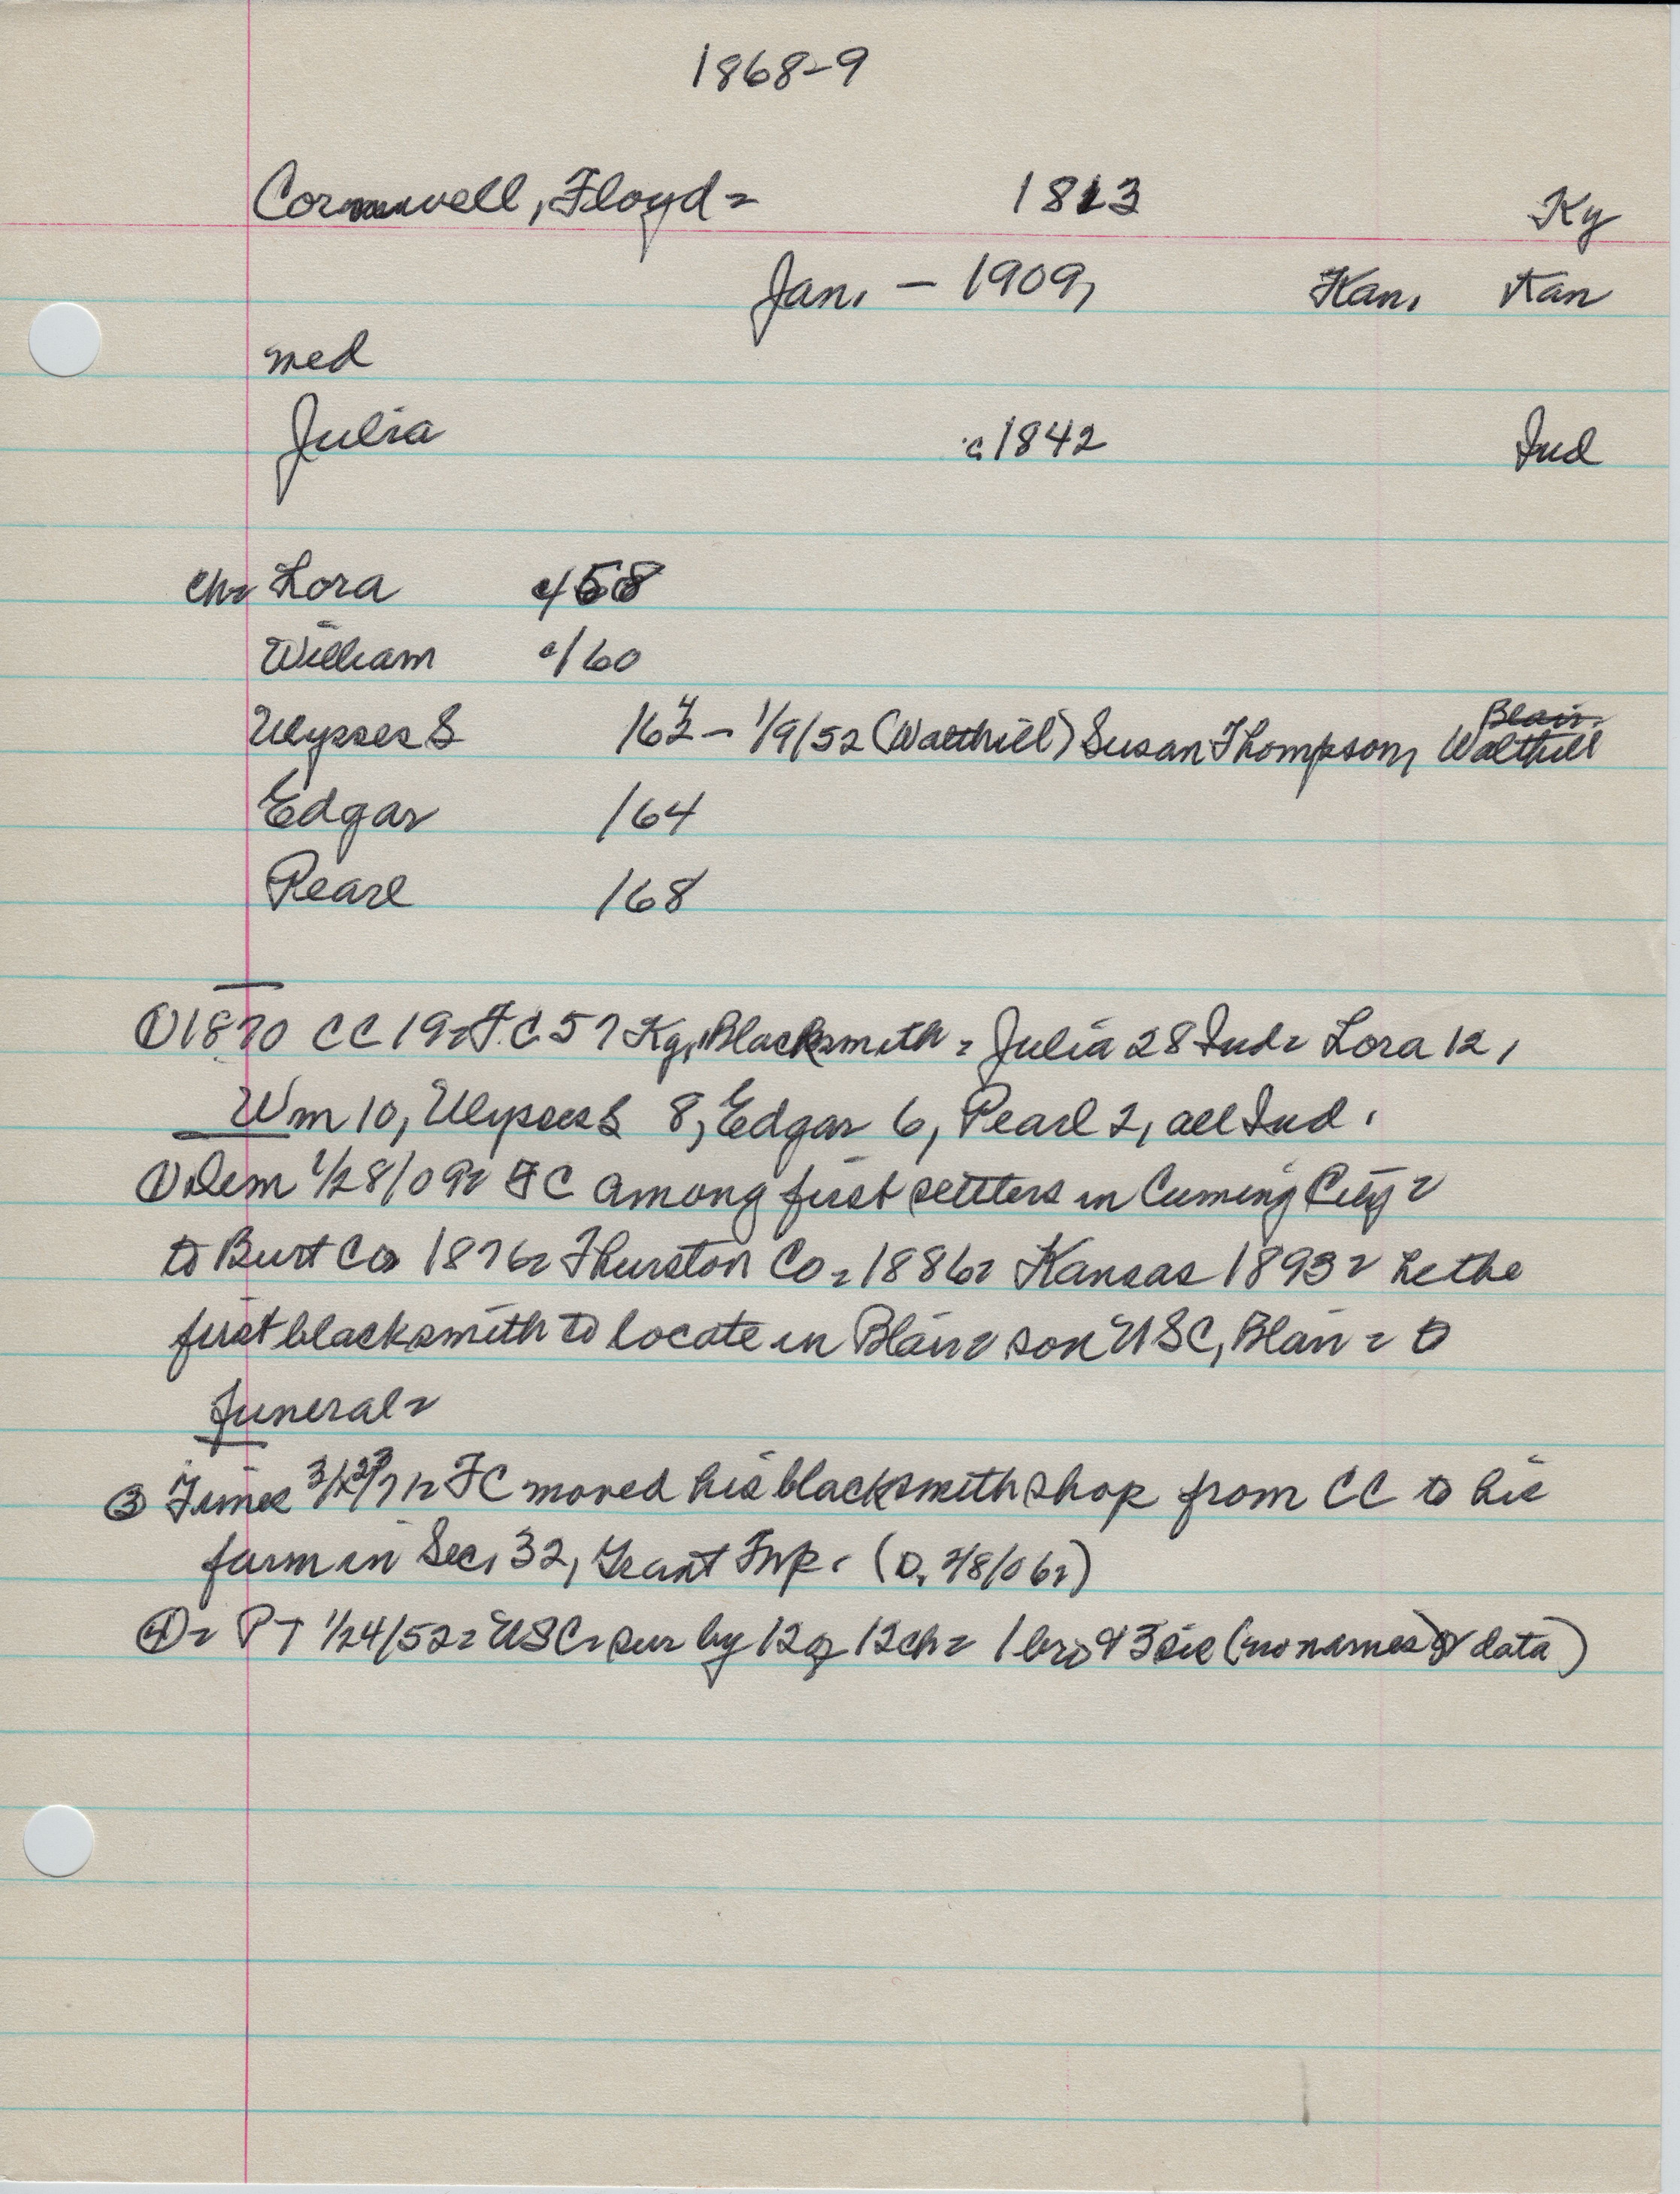 1868-9
Cornwell, Floyd = 1813 Ky
Jan. - 1909, Kan. Kan
med
Julia c 1842 Ind
ch= Lora c/58
William c/60
Ulysses S /62 - 1/9/52 (Walthill) Susan Thompson, Blair Walthill
Edgar /64
Pearl /68
① 1870 CC 19= F.C 57 Ky, Blacksmith = Julia 28 Ind = Lora 12,
Wm 10, Ulysses S 8, Edgar 6, Pearl 2, all Ind.
Dem 1/28/09= FC among first settlers in Cuming City =
to Burt Co 1876= Thurston Co = 1886= Kansas 1893 = he the
first blacksmith to locate in Blair = son USC, Blair = to
funeral =
③ Times FC moved his blacksmith shop from CC to his
farm in Sec. 32, Grant Twp. (D. 2/8/06=)
④ = PT 1/24/52 = USC = sur by 12 of 12 ch = 1 bro & 3 sis (no names or data)